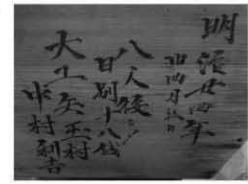 明治廿四年
旧四月
八人役
日別十八銭
大工矢玉村
中村利吉